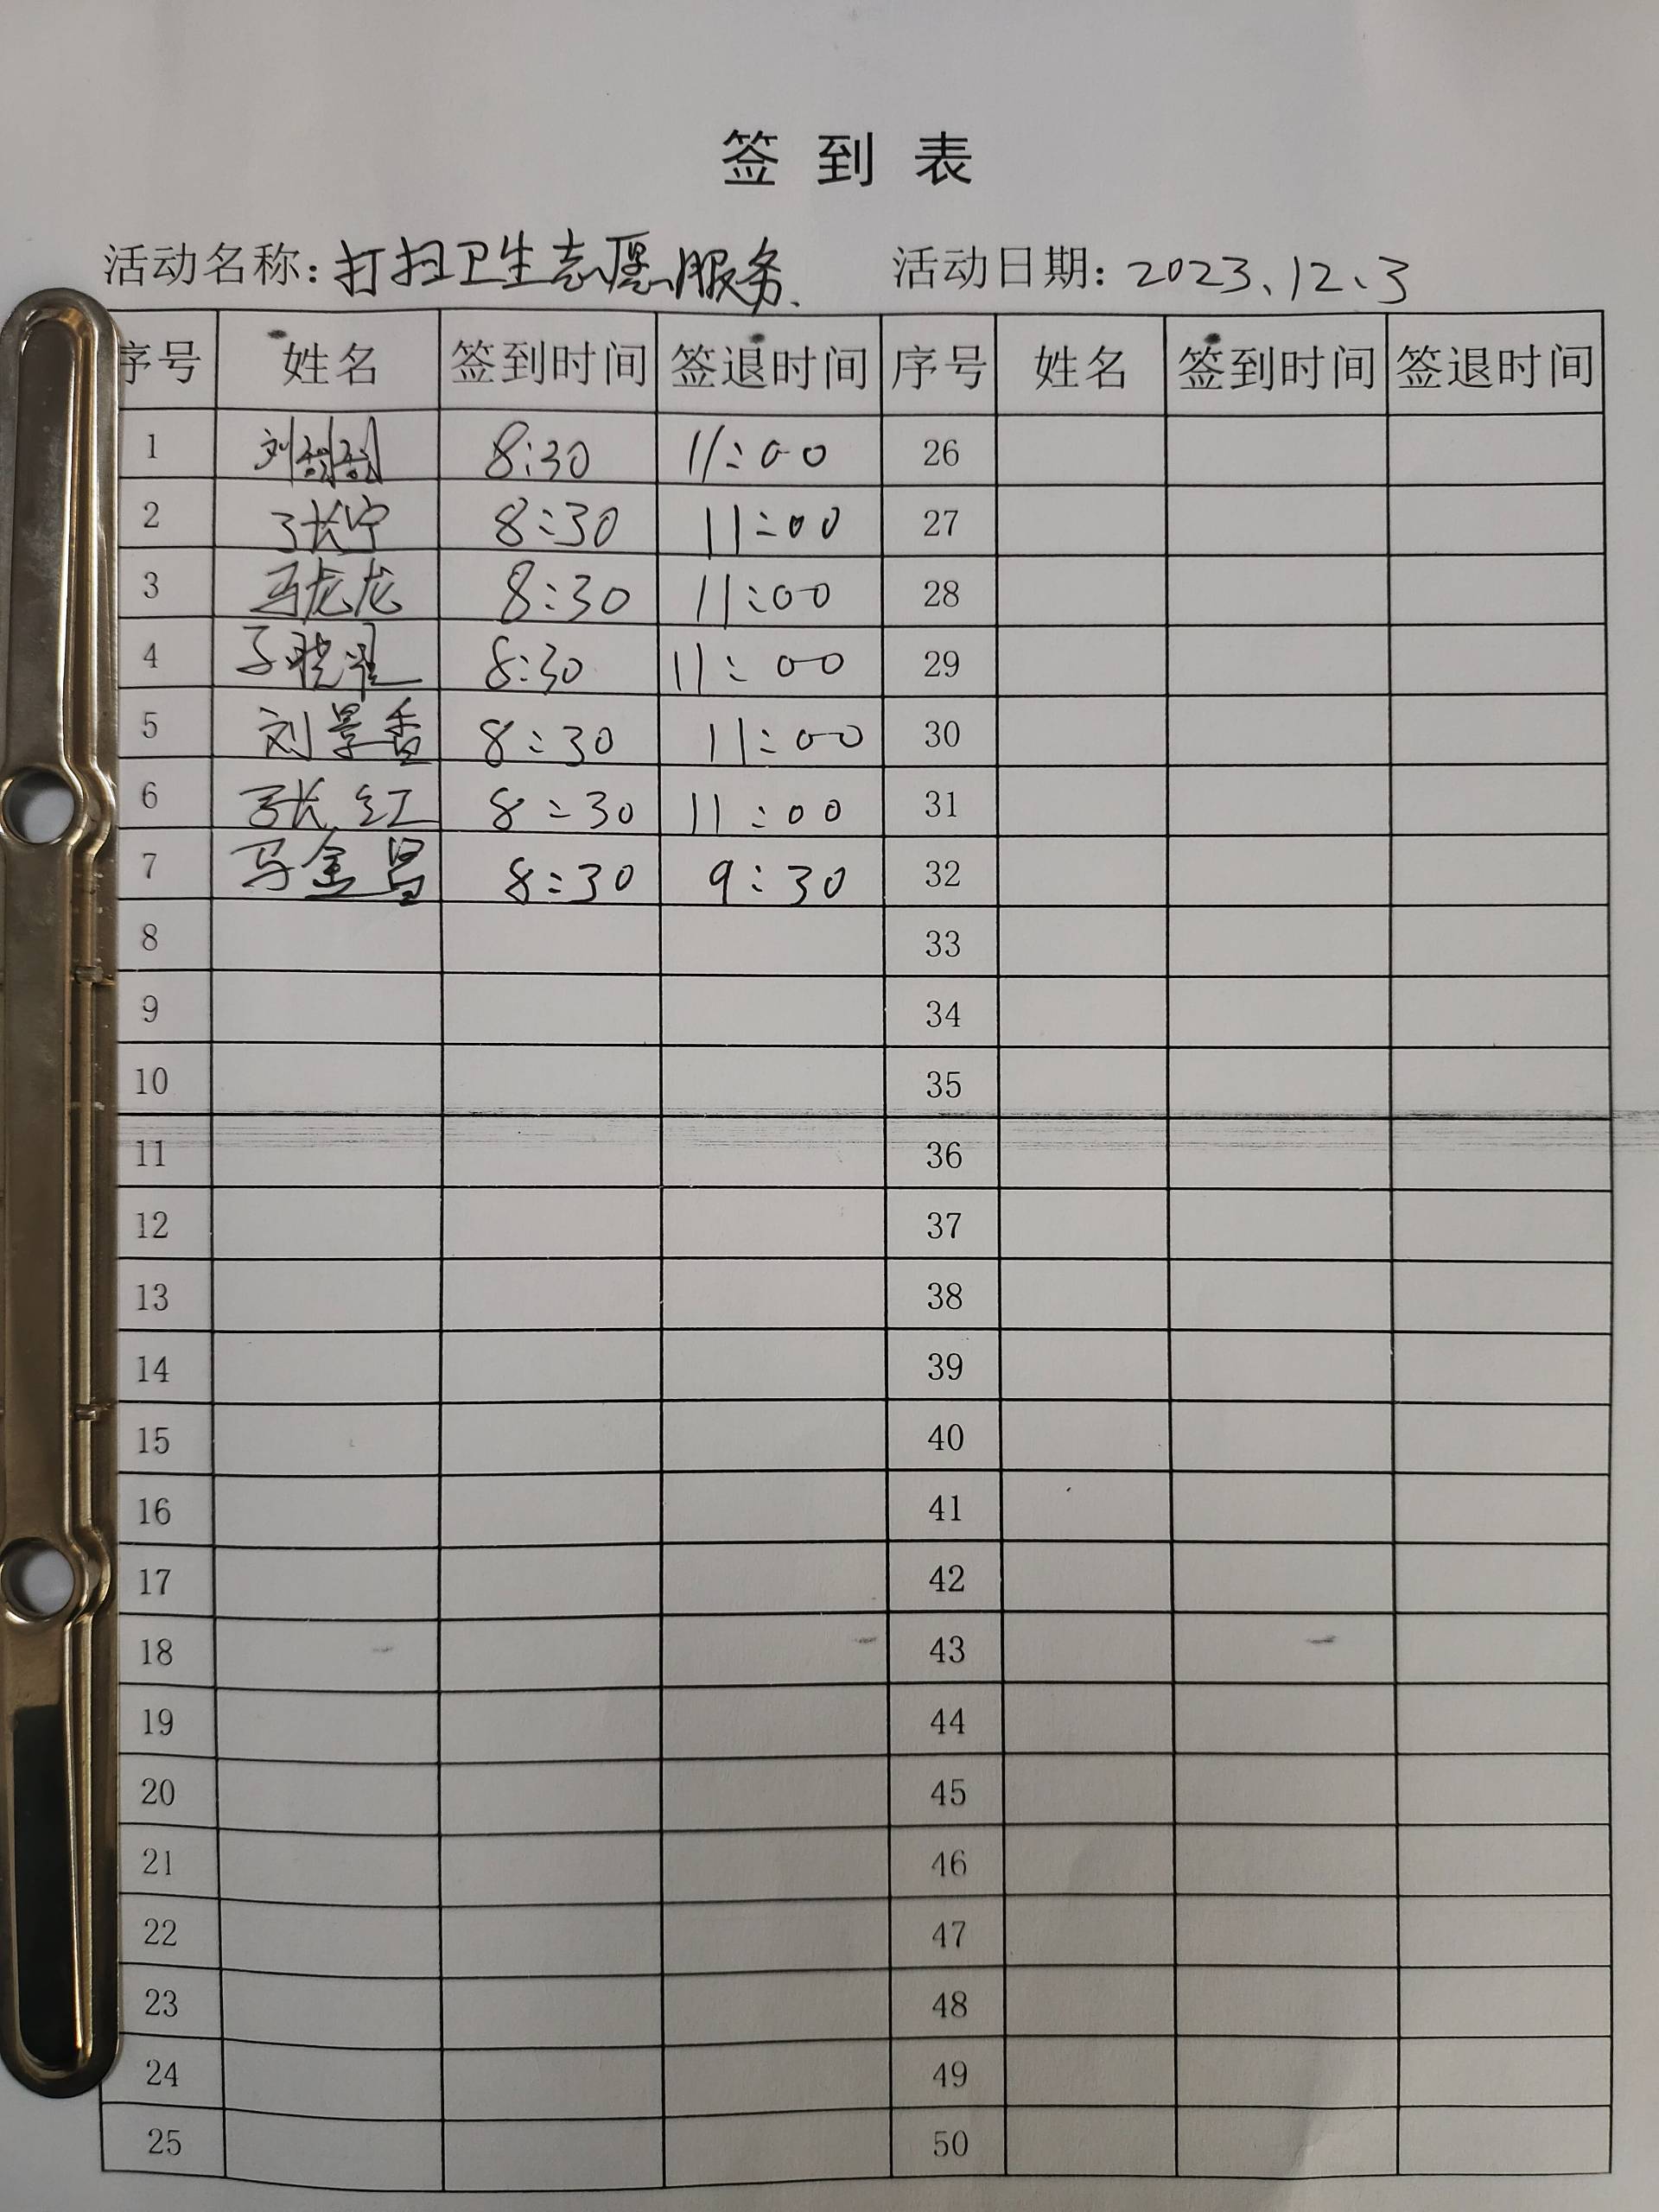 签到表
活动名称：打扫卫生志愿服务. 活动日期：2023、12、3
序号 姓名 签到时间 签退时间 序号 姓名 签到时间 签退时间
1 刘 8:30 11:00 26
2 张宁 8:30 11:00 27
3 马龙龙 8:30 11:00 28
4 8:30 11:00 29
5 刘景香 8:30 11:00 30
6 张红 8:30 11:00 31
7 马金昌 8:30 9:30 32
8 33
9 34
10 35
11 36
12 37
13 38
14 39
15 40
16 41
17 42
18 43
19 44
20 45
21 46
22 47
23 48
24 49
25 50